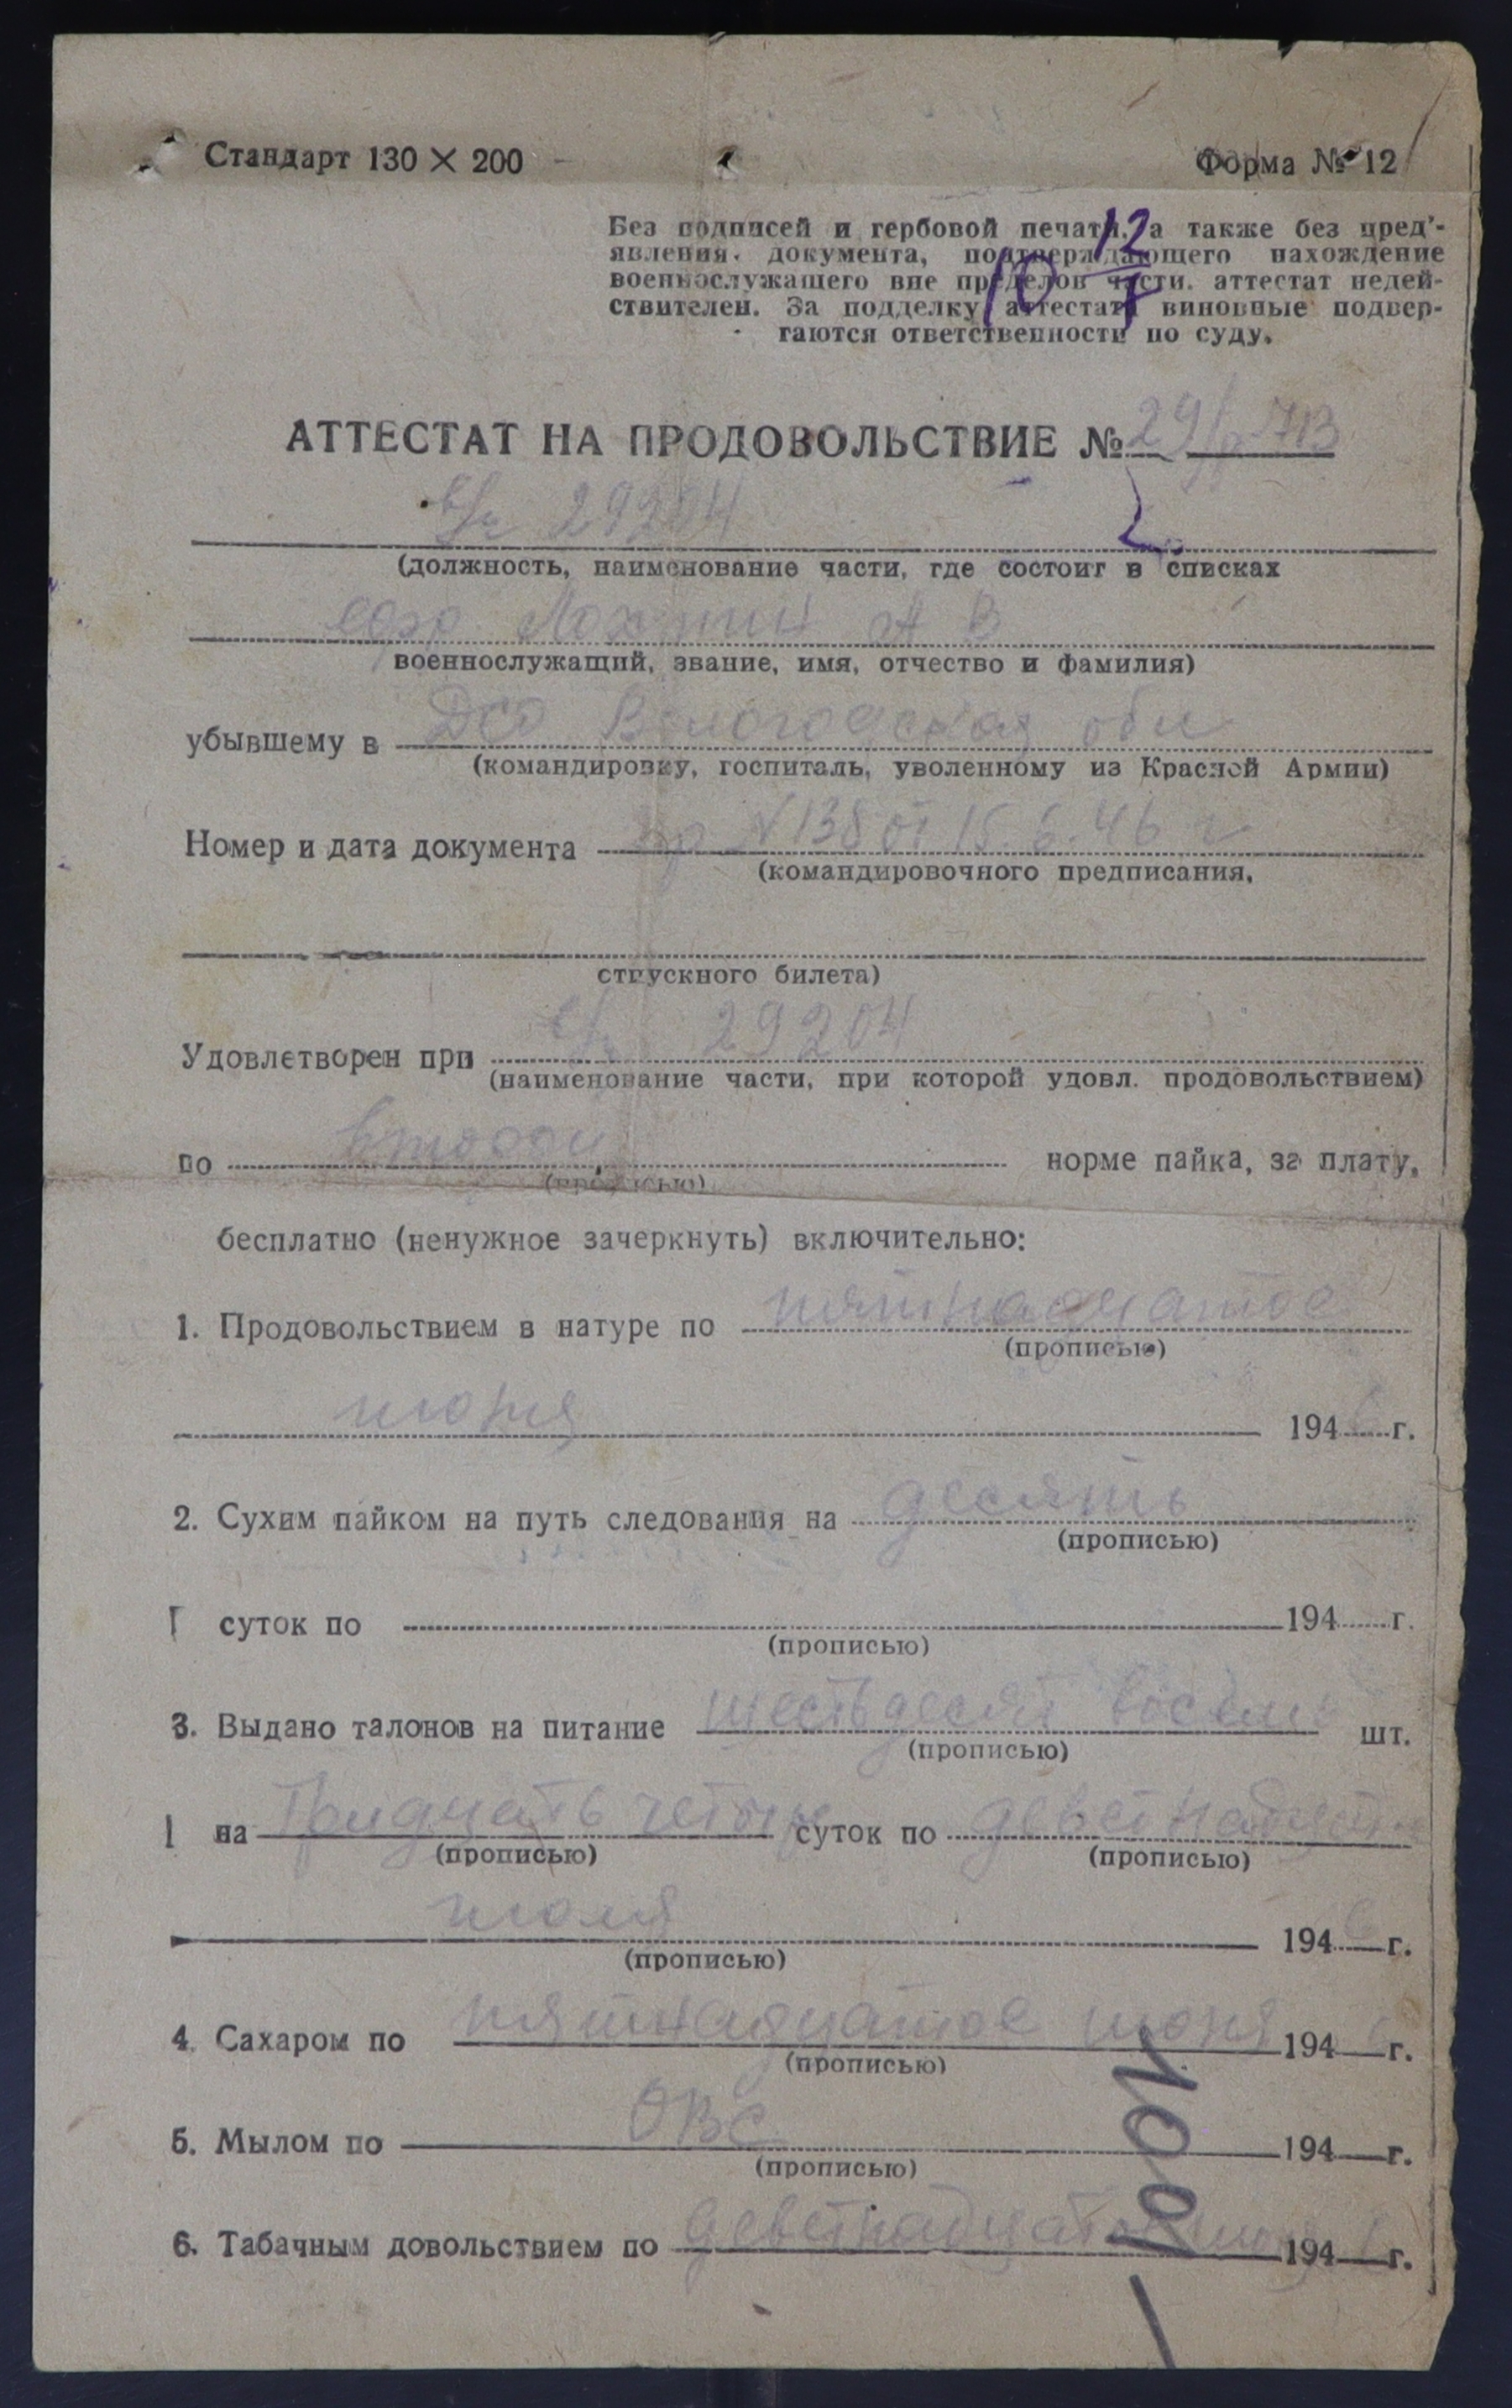 Стандарт 130 × 200
Форма № 12
Без подписей и гербовой печати, а также без пред'-
явления документа, подтверждающего нахождение
военнослужащего вне пределов части. аттестат недей-
ствителен. За подделку аттестата виновные подвер-
гаются ответственности по суду.
12
10
АТТЕСТАТ НА ПРОДОВОЛЬСТВИЕ №
в/ч 29204
(должность, наименование части, где состоит в списках
А В
военнослужащий, звание, имя, отчество и фамилия)
убывшему в ДСО Вологодская обл
(командировку, госпиталь, уволенному из Красной Армии)
Номер и дата документа пр №138 от 15.6.46 г
(командировочного предписания,
отпускного билета)
Удовлетворен при в/ч 29204
(наименование части, при которой удовл. продовольствием)
по второй норме пайка, за плату,
(прописью)
бесплатно (ненужное зачеркнуть) включительно:
1. Продовольствием в натуре по пятнадцатое
(прописью)
июня 1946 г.
2. Сухим пайком на путь следования на десять
(прописью)
суток по 194 г.
(прописью)
3. Выдано талонов на питание шестьдесят восемь шт.
(прописью)
на тридцать четыре суток по девятнадцат
(прописью) (прописью)
июля 1946 г.
(прописью)
4. Сахаром по пятнадцатое июня 194 г.
(прописью)
5. Мылом по ОВС 194 г.
(прописью)
6. Табачным довольствием по девятнадцатое 194 г.